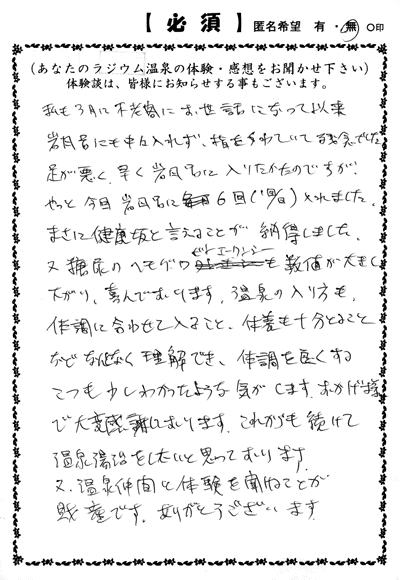 【 必 須 】 匿名希望 有 ・ 無 ○印
(あなたのラジウム温泉の体験・感想をお聞かせ下さい)
体験談は、皆様にお知らせする事もございます。
私も3月に不老閣にお世話になって以来
岩風呂にも中々入れず、指をくわえていて残念でした
足が悪く、早く岩風呂に入りたかたのですが、
やっと今回岩風呂に 6回(1日1回) 入れました。
まさに健康坂と言えることが納得しました。
又糖尿のヘモグロビンエーワンシーも数値が大きく
下がり、喜んでおります。温泉の入り方も、
体調に合わせて入ること、休養も十分とること
など なんとなく理解でき、体調を良くする
こつも少しわかったような気がします。おかげ様
で大変感謝しております。これからも続けて
温泉湯治をしたいと思っております。
又、温泉仲間と体験を聞ねことが
財産です。ありがとうございます